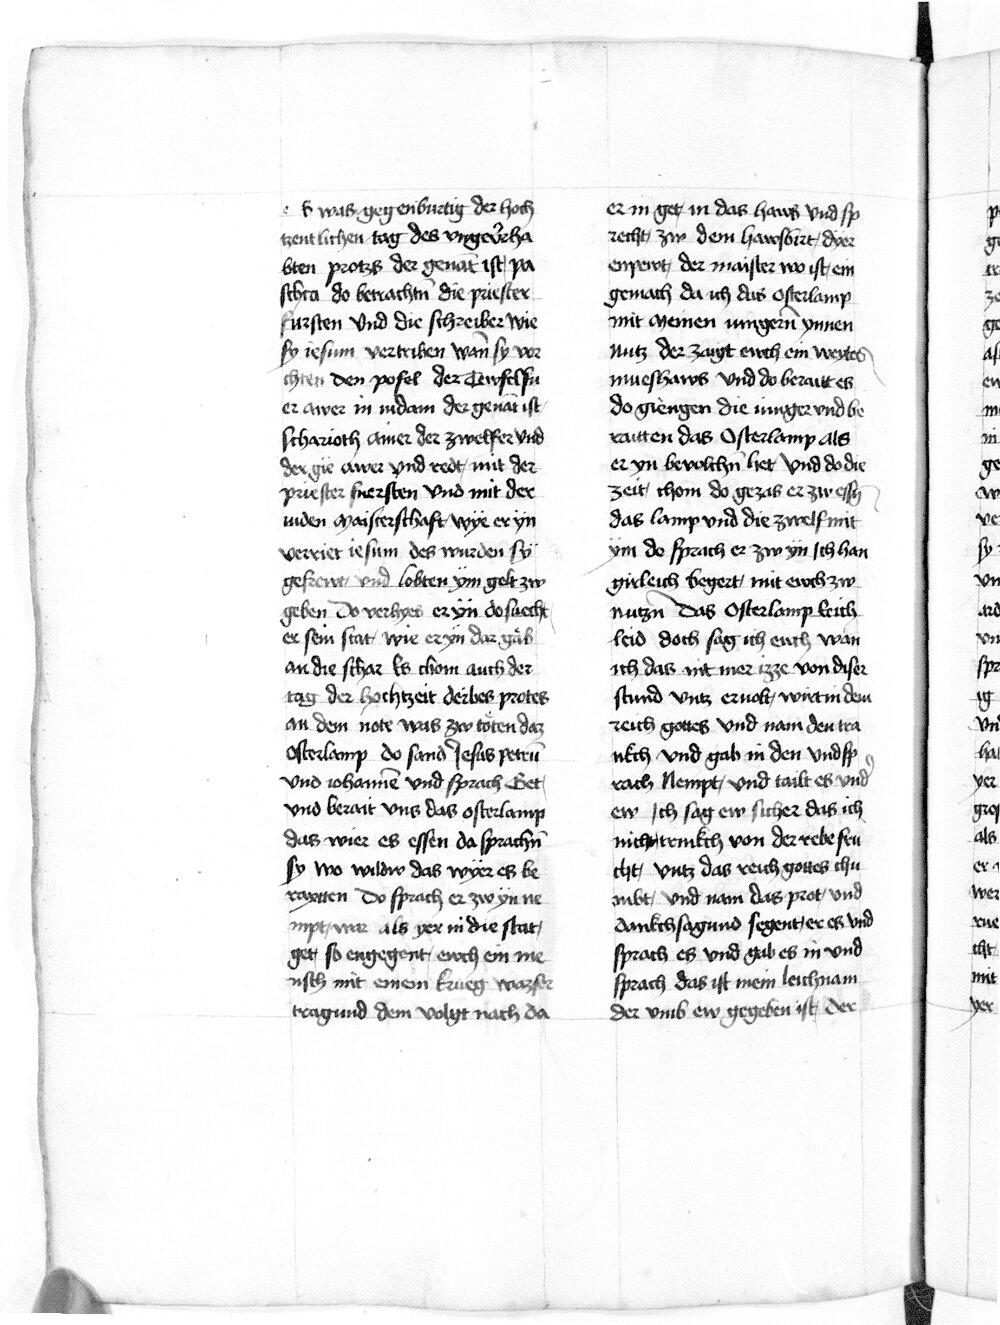 e S was gegenburtig der hoch
tzentlichen tag des vngeürha
bten protzs der genāt ist pa
scha do betrachtn̄ die priester
fursten Vnd die schreiber wie
sy iesum vertriben wan̄ sy vor
chten den pofel der Tewfel fu
er awer in iudam der genāt ist
scharioth ainer der zwelfer vnd
der gie awer vnd redt mit der
priester fuersten vnd mit der
iuden Maisterschaft wÿe er ÿn
verriet iesum des wurden sÿ
gefrewt vnd lobten ÿm gelt zw
geben Do verhyes er ÿn do suecht
er sein stat wie er ÿn dar gäb
an die schar Es chom auch der
tag der hochtzeit derbes protes
an dem note was zw töten daz
Osterlamp do sand Jesus petrū
vnd iohannē vnd sprach Get
vnd berait vns das osterlamp
das wier es essen da sprachn̄
sy wo wildw das wyer es be
raytten Do sprach er zw ÿn ne
mpt war als yer in die stat
get so engegent ewch ein me
nsch mit einem krueg wazser
tragund dem volgt nach da
er in get in das haws vnd sp
recht zw dem hawsbirt dyer
enpewt der maister wo ist ein
gemach da ich das Osterlamp
mit Meinen iungern̄ ynnen
nutz der zaigt ewch ein weytes
mueshaws vnd do beraitt es
do giengen die iunger vnd be
raitten das Osterlamp als
er yn bevolchn̄ het Vnd do die
zeit chom do gezas er zw essn̄
das lamp vnd die zwelf mit
ÿm do sprach er zw ÿn Ich han
girleich begert mit ewch zw
nutzn Das Osterlamp E ich
leid doch sag ich euch wan
ich das nit mer izze von diser
stund vntz er volt wirt in dem
reich gottes vnd nam den tra
nkch vnd gab in den vnd sp
rach Nempt vnd tailt es vnd
ew Ich sag ew sicher das ich
nicht trinkch von der rebe fru
cht vntz das reich gottes chu
mbt vnd nam das prot vnd
dankchsagund segent er es vnd
sprach es vnd gab es in vnd
sprach das ist mein leichnam
der vmb ew gegeben ist der